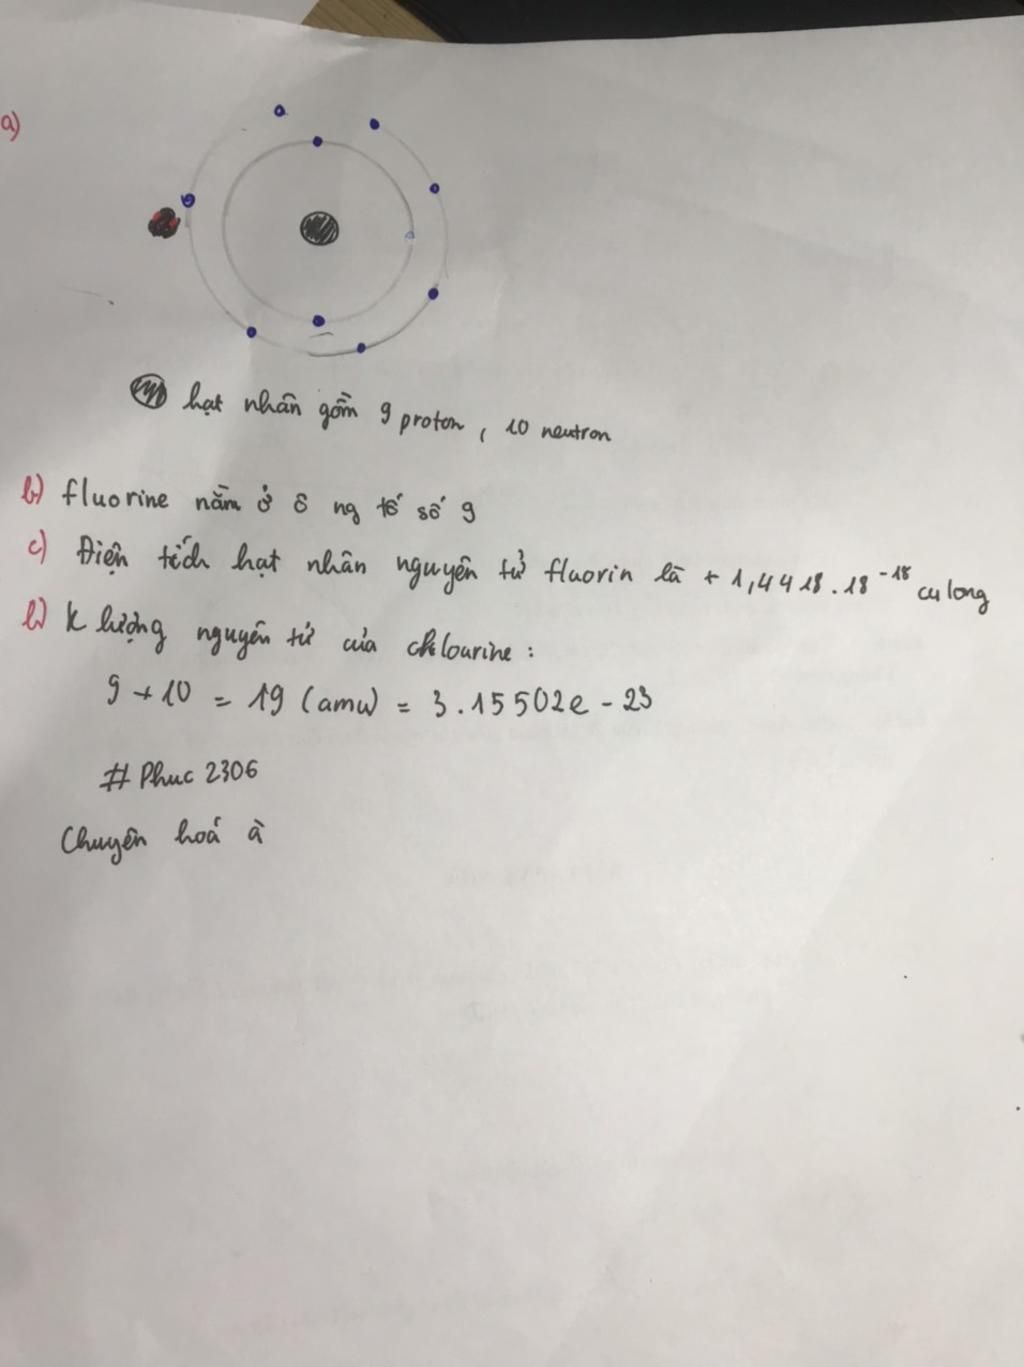 a)
hạt nhân gồm 9 proton, 10 neutron
b) fluorine nằm ở ô ng tố số 9
c) Điện tích hạt nhân nguyên tử fluorin là + 1,4418.18⁻¹⁸ culong
d) K lượng nguyên tử của chlourine:
9 + 10 = 19 (amu) = 3.15502e - 23
# Phuc 2306
Chuyên hoá à